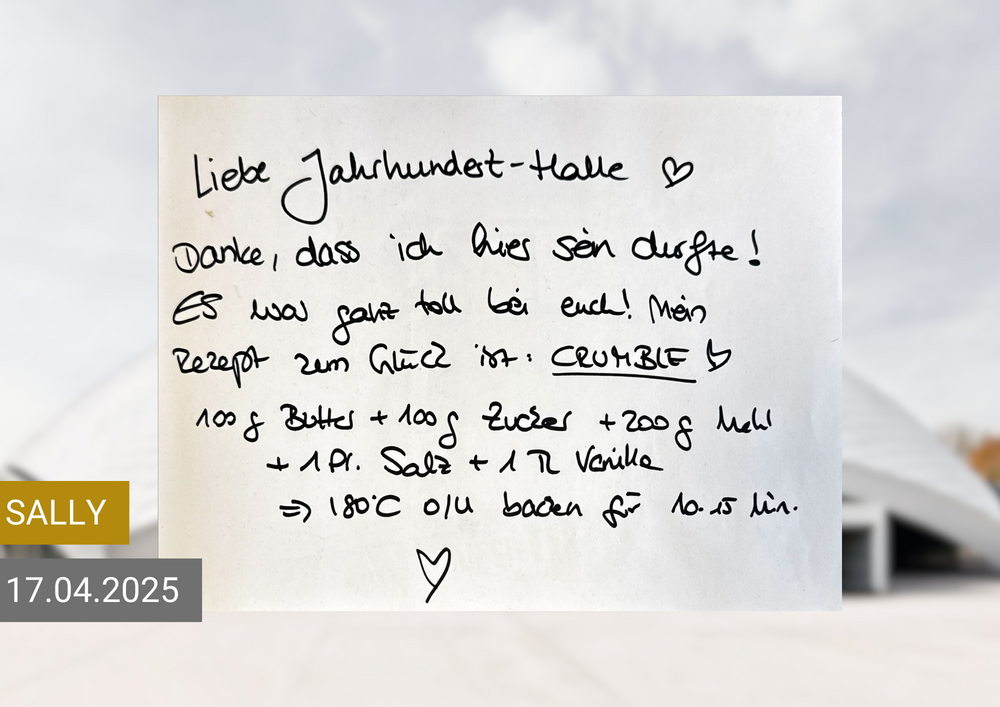 Liebe Jahrhundert-Halle ♡
Danke, dass ich hier sein durfte!
ES war ganz toll bei euch! Mein
Rezept zum Glück ist: CRUMBLE ♡
100 g Butter + 100 g Zucker + 200 g Mehl
+ 1 Pr. Salz + 1 TL Vanille
⇒ 180°C O/U backen für 10-15 Min.
♡
SALLY
17.04.2025